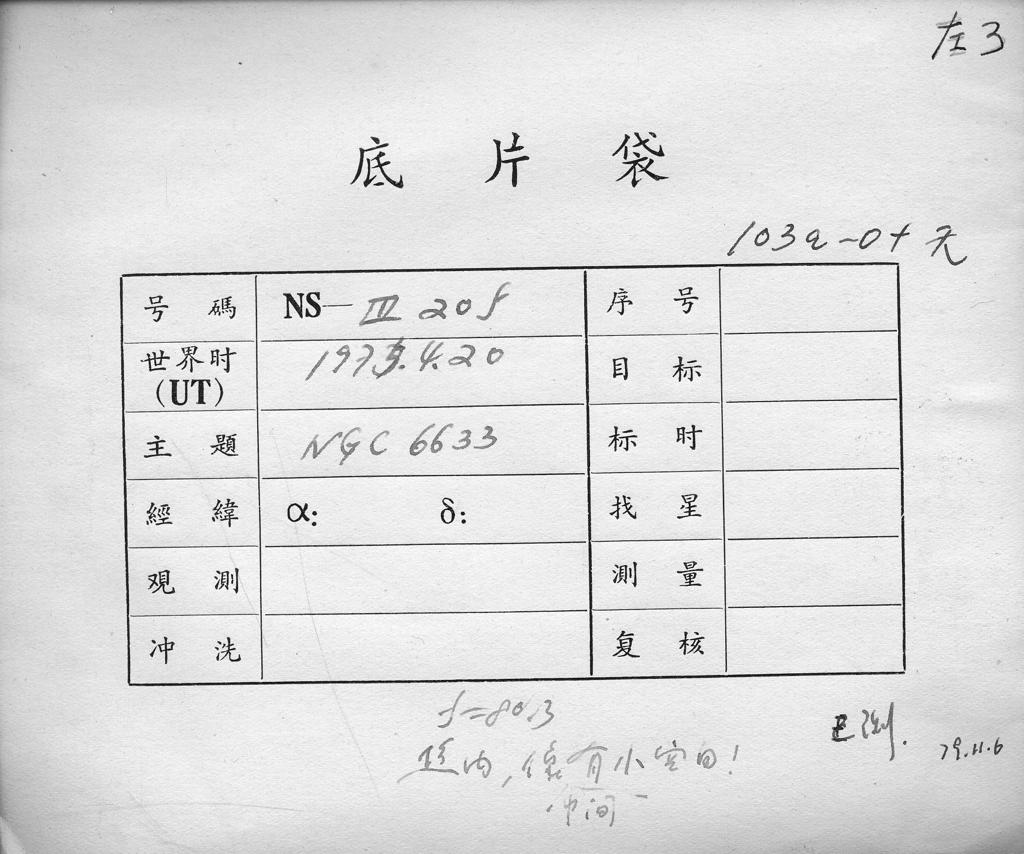 左3
底片袋
103a-O+无
号碼 NS—Ⅲ 20 序号
世界时(UT) 197 .4.20 目标
主題 NGC 6633 标时
經緯 α: δ: 找星
观測 測量
冲洗 复核
f=80.3
内,像有小空白!
中间
已测.
79.11.6